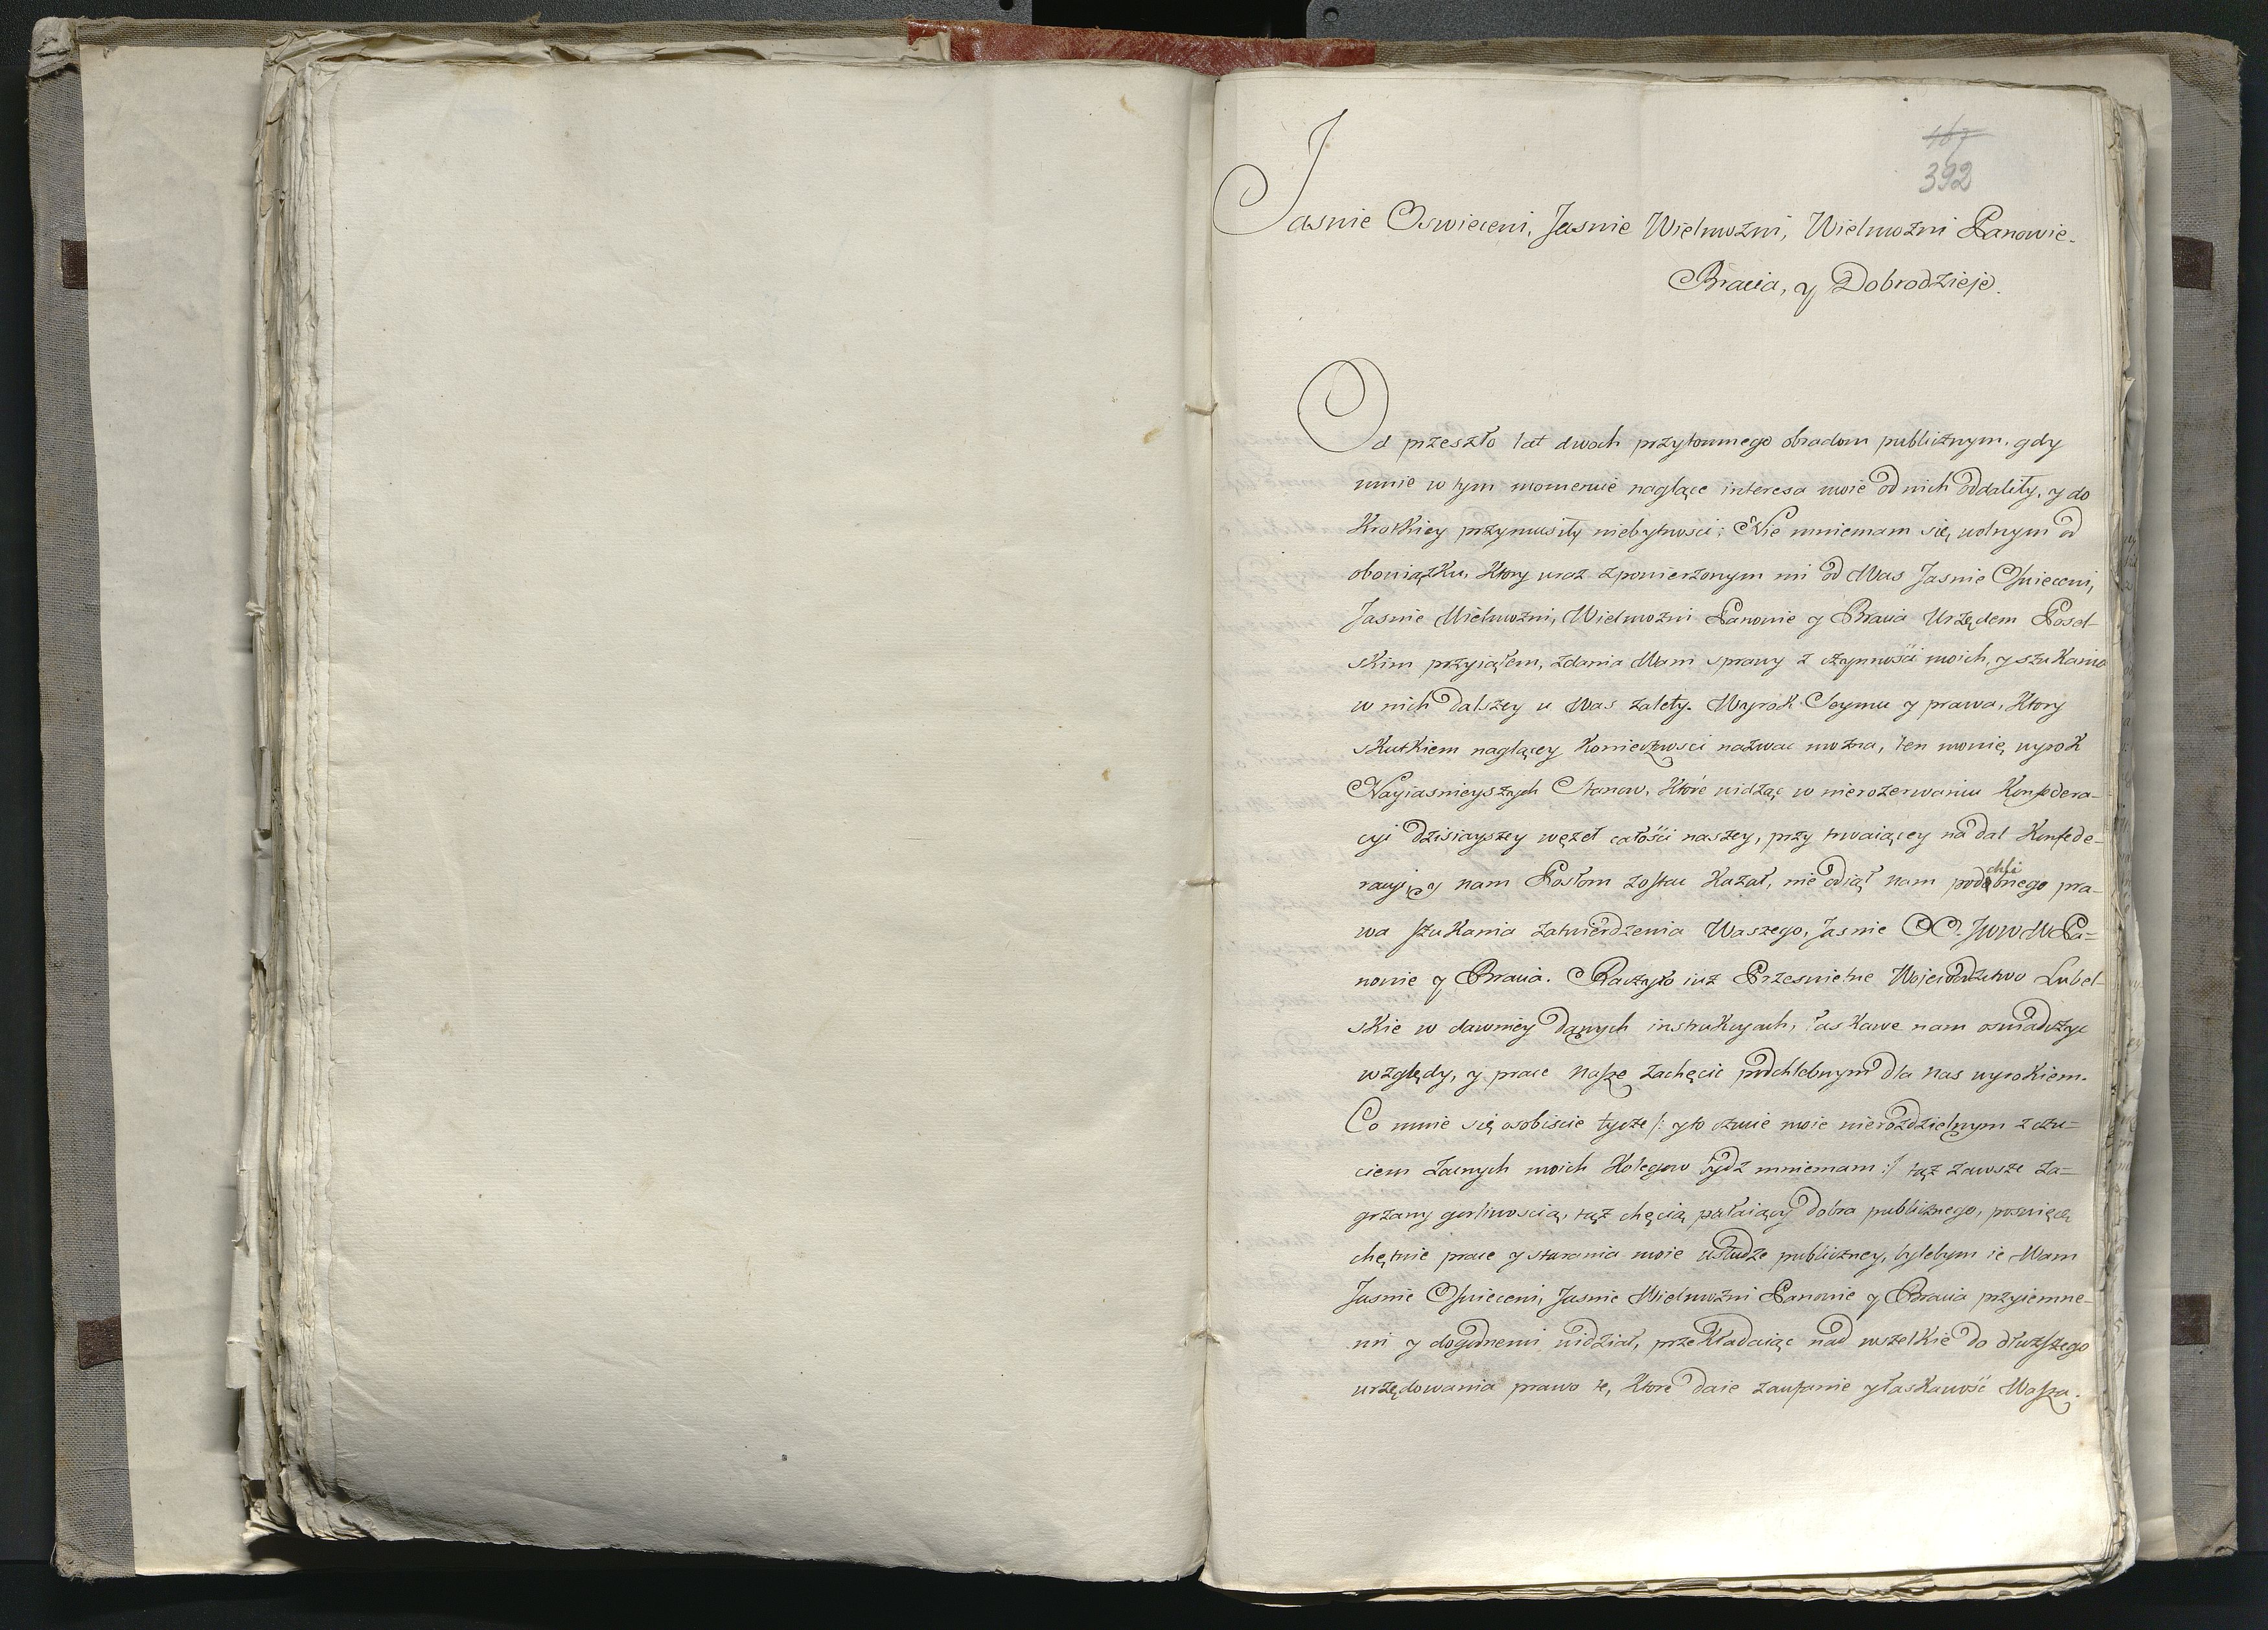 467
392
Jasnie Oswieceni, Jasnie Wielmozni, Wielmozni Panowie
Bracia, y Dobrodzieje.
Od przeszło lat dwoch przytomnego obradom publicznym, gdy
mnie w tym momencie naglące interesa moie od nich oddality, y do
Krotkiey przymusity niebytnosci; Nie mniemam się wolnym od
obowiązku, Ktory wraz z powierzonym mi od Was Jasnie Oswieceni,
Jasnie Wielmozni, Wielmozni Panowie y Bracia Urzędem Posel-
skim przyiąłem, zdania Wam sprawy z czynności moich, y szukania
w nich dalszey u Was zalety. Wyrok Seymu y prawa, Ktory
skutkiem naglącey Konieczności nazwac mozna, ten mowię wyrok
Nayiasnieyszych Stanow, Ktore widząc w nierozerwaniu Konfedera-
cyi dzisiayszey węzeł całości naszey, przy trwaiącey na dal Konfede-
racyi y nam Posłom zostac Kazał, nie odiął nam podchlebnego pra-
wa szukania zatwierdzenia Waszego, Jasnie OO. JWW WPa=
nowie y Bracia. Raczyło iuz Przeswietne Wojewodztwo Lubel-
skie w dawniey danych instrukcyach, łaskawe nam oswiadczyc
względy, y prace nasze zachęcic podchlebnym dla nas wyrokiem.
Co mnie się osobiscie tycze /: y to czucie moie nierozdzielnym z czu=
ciem zacnych moich Kolegow bydz mniemam :/ tąz zawsze za=
grzany gorliwoscią, tąz chęcią pałaiący dobra publicznego, poswięcę
chętnie prace y starania moie usłudze publiczney, bylebym ie Wam
Jasnie Oswieceni, Jasnie Wielmozni Panowie y Bracia przyiemne-
mi y dogodnemi widział, przekładaiąc nad wszelkie do dłuzszego
urzędowania prawo te, Ktore daie zaufanie y łaskawość Wasza.